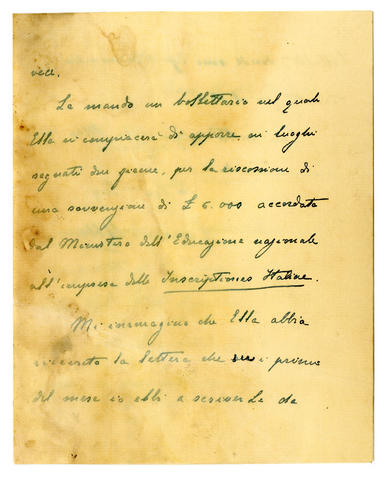 vece.
Le mando un bollettario nel quale
Ella si compiacerà di apporre, nei luoghi
segnati due firme, per la riscossione di
una sovvenzione di £ 6.000 accordata
dal Ministero dell'Educazione nazionale
all'impresa delle Inscriptiones Italiae.
Mi immagino che Ella abbia
ricevuto la lettera che i primi
del mese io ebbi a scriverLe da